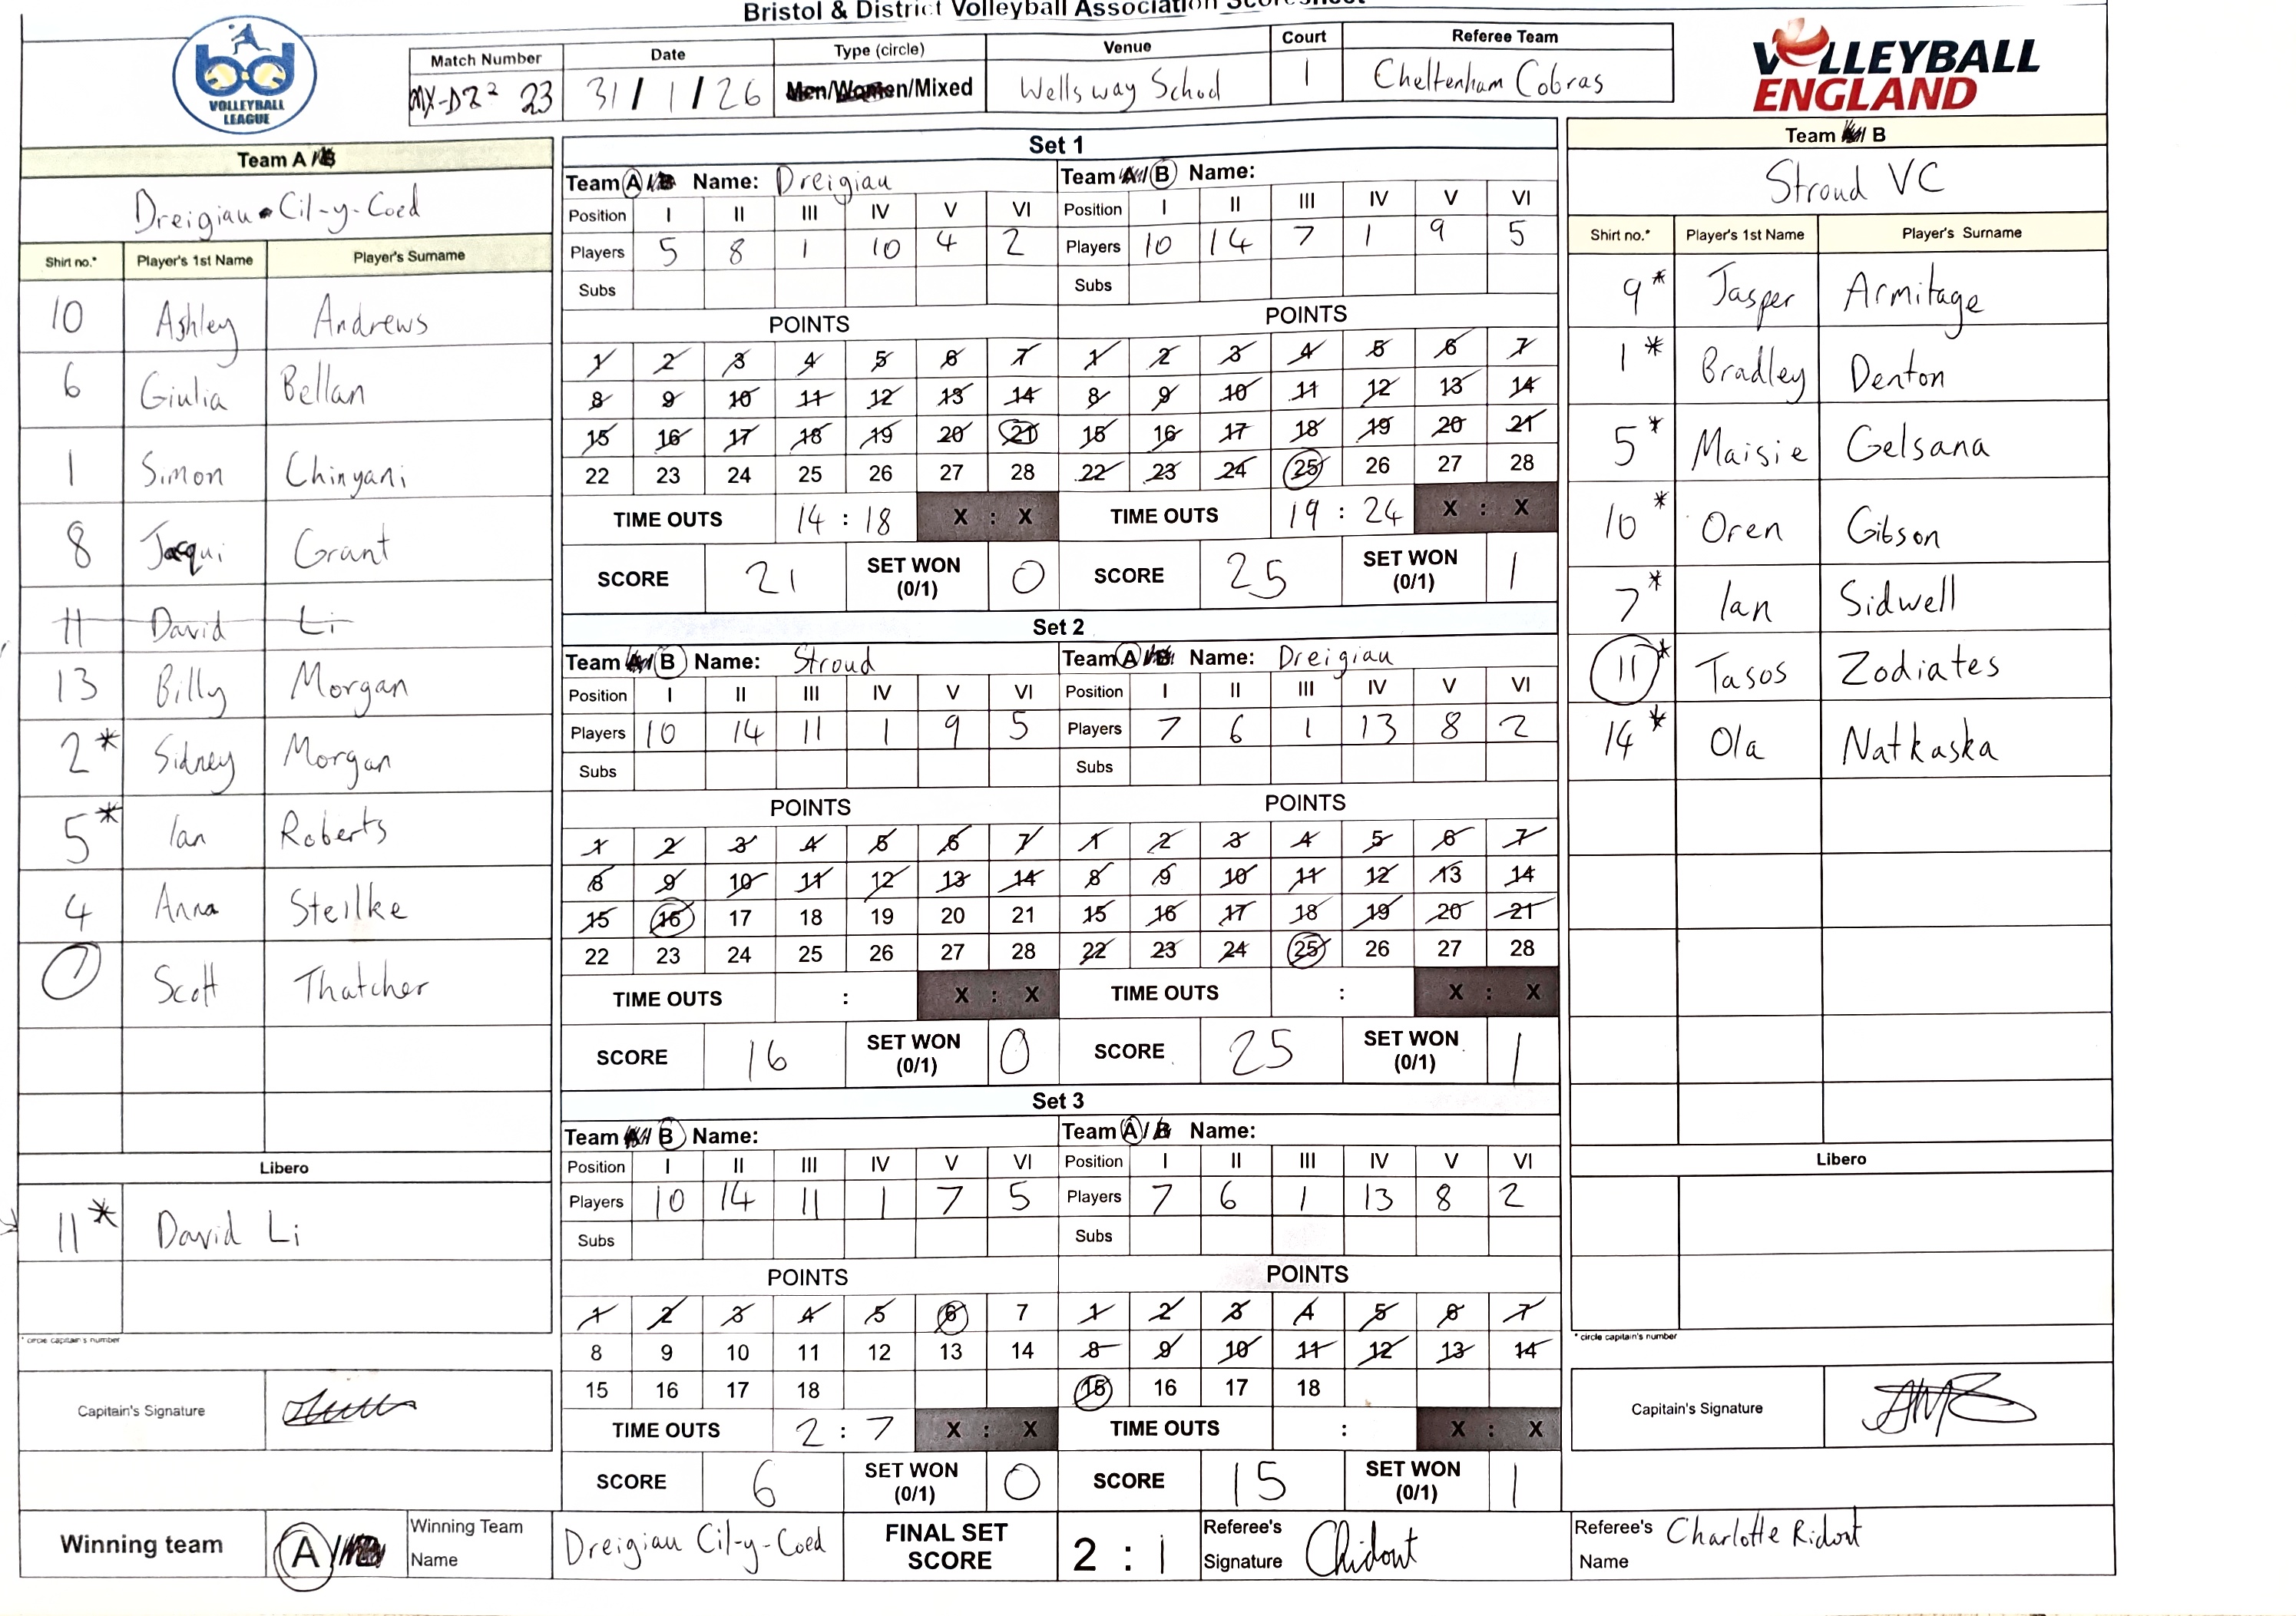 Bristol & District Volleyball Association Scoresheet
bd
VOLLEYBALL
LEAGUE
Match Number
Date
Type (circle)
Venue
Court
Referee Team
MX-DZ2 23
31/1/26
Men/Women/Mixed
Wellsway School
1
Cheltenham Cobras
VOLLEYBALL
ENGLAND
Team A/B
Dreigiau Cil-y-Coed
Shirt no.* Player's 1st Name Player's Surname
10 Ashley Andrews
6 Giulia Bellan
1 Simon Chinyani
8 Jacqui Grant
11 David Li
13 Billy Morgan
2* Sidney Morgan
5* Ian Roberts
4 Anna Steilke
7 Scott Thatcher
Libero
11* David Li
* circle capitain's number
Capitain's Signature
Set 1
Team A/B Name: Dreigiau
Position I II III IV V VI
Players 5 8 1 10 4 2
Subs
POINTS
1 2 3 4 5 6 7
8 9 10 11 12 13 14
15 16 17 18 19 20 21
22 23 24 25 26 27 28
TIME OUTS 14 : 18 X : X
SCORE 21 SET WON (0/1) 0
Team A/B Name:
Position I II III IV V VI
Players 10 14 7 1 9 5
Subs
POINTS
1 2 3 4 5 6 7
8 9 10 11 12 13 14
15 16 17 18 19 20 21
22 23 24 25 26 27 28
TIME OUTS 19 : 24 X : X
SCORE 25 SET WON (0/1) 1
Set 2
Team A/B Name: Stroud
Position I II III IV V VI
Players 10 14 11 1 9 5
Subs
POINTS
1 2 3 4 5 6 7
8 9 10 11 12 13 14
15 16 17 18 19 20 21
22 23 24 25 26 27 28
TIME OUTS : X : X
SCORE 16 SET WON (0/1) 0
Team A/B Name: Dreigiau
Position I II III IV V VI
Players 7 6 1 13 8 2
Subs
POINTS
1 2 3 4 5 6 7
8 9 10 11 12 13 14
15 16 17 18 19 20 21
22 23 24 25 26 27 28
TIME OUTS : X : X
SCORE 25 SET WON (0/1) 1
Set 3
Team A/B Name:
Position I II III IV V VI
Players 10 14 11 1 7 5
Subs
POINTS
1 2 3 4 5 6 7
8 9 10 11 12 13 14
15 16 17 18
TIME OUTS 2 : 7 X : X
SCORE 6 SET WON (0/1) 0
Team A/B Name:
Position I II III IV V VI
Players 7 6 1 13 8 2
Subs
POINTS
1 2 3 4 5 6 7
8 9 10 11 12 13 14
15 16 17 18
TIME OUTS : X : X
SCORE 15 SET WON (0/1) 1
Team A/B
Stroud VC
Shirt no.* Player's 1st Name Player's Surname
9* Jasper Armitage
1* Bradley Denton
5* Maisie Gelsana
10* Oren Gibson
7* Ian Sidwell
11* Tasos Zodiates
14* Ola Natkaska
Libero
* circle capitain's number
Capitain's Signature
Winning team A/B
Winning Team Name Dreigiau Cil-y-Coed
FINAL SET SCORE 2 : 1
Referee's Signature CRidout
Referee's Name Charlotte Ridout